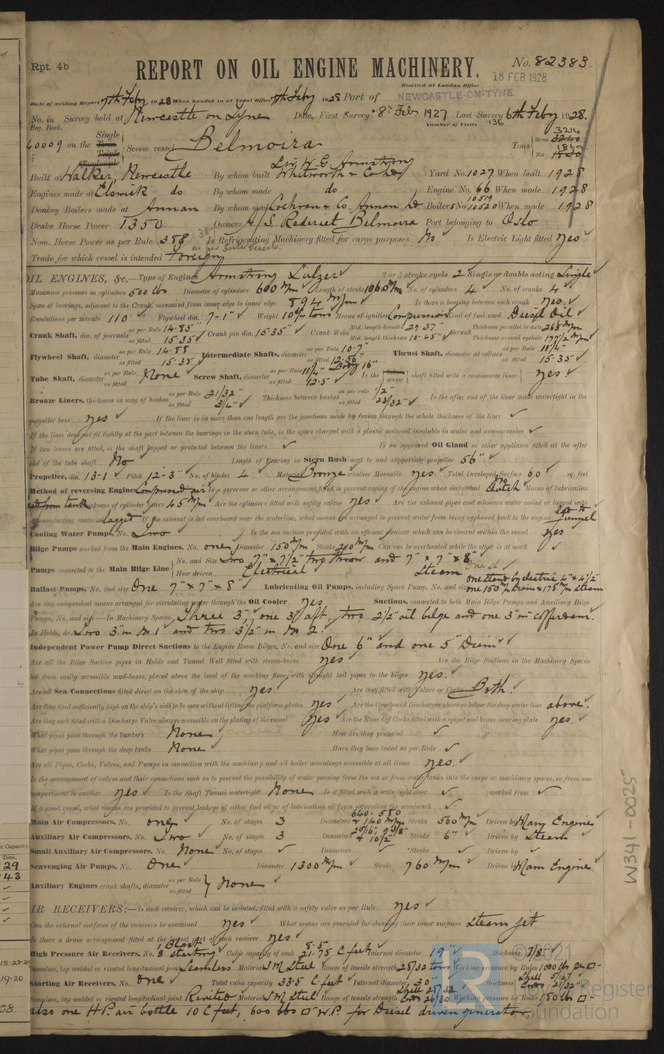 Rpt. 4b
REPORT ON OIL ENGINE MACHINERY.
No. 82383
Received at London Office 18 FEB 1928
Date of writing Report 17th Feby 1928 When handed in at Local Office 17th Feby 1928 Port of NEWCASTLE-ON-TYNE.
No. in Survey held at Newcastle on Tyne Date, First Survey 8th Feby 1927 Last Survey 6th Feby 1928.
Reg. Book. Number of Visits 136
40009 on the Single Screw vessel Belmoira Tons
Built at Walker, Newcastle By whom built Sir W. G. Armstrong Whitworth & Co Ld Yard No. 1027 When built 1928
Engines made at Elswick do By whom made do Engine No. 66 When made 1928
Donkey Boilers made at Annan By whom made Cochran & Co. Annan Ld Boiler No. 10520 When made 1928
Brake Horse Power 1350 Owners A/S Rederiet Belmoira Port belonging to Oslo
Nom. Horse Power as per Rule 388 Is Refrigerating Machinery fitted for cargo purposes No Is Electric Light fitted Yes
Trade for which vessel is intended Foreign
OIL ENGINES, &c.—Type of Engines Armstrong Sulzer 2 or 4 stroke cycle 2 Single or double acting Single
Maximum pressure in cylinders 500 lbs Diameter of cylinders 600 m/m Length of stroke 1060 m/m No. of cylinders 4 No. of cranks 4
Span of bearings, adjacent to the Crank, measured from inner edge to inner edge 894 m/m Is there a bearing between each crank Yes
Revolutions per minute 110 Flywheel dia. 7'-1" Weight 10 tons Means of ignition Compression Kind of fuel used Diesel Oil
Crank Shaft, dia. of journals as per Rule 14.85" as fitted 15.35" Crank pin dia. 15.35" Crank Webs Mid. length breadth 29.37" Mid. length thickness 10.45" Thickness parallel to axis 265 m/m
Flywheel Shaft, diameter as per Rule 14.85 as fitted 15.35 Intermediate Shafts, diameter as per Rule 10.7" Thrust Shaft, diameter at collars as per Rule 11¼" as fitted 15.35
Tube Shaft, diameter None Screw Shaft, diameter as fitted 12.5 Is the screw shaft fitted with a continuous liner Yes
Bronze Liners, thickness in way of bushes as per Rule 21/32" as fitted ¾" Thickness between bushes as per Rule ½" Is the after end of the liner made watertight in the
propeller boss Yes If the liner is in more than one length are the junctions made by fusion through the whole thickness of the liner
If the liner does not fit tightly at the part between the bearings in the stern tube, is the space charged with a plastic material insoluble in water and non-corrosive
If two liners are fitted, is the shaft lapped or protected between the liners Is an approved Oil Gland or other appliance fitted at the after
end of the tube shaft No Length of Bearing in Stern Bush next to and supporting propeller 56"
Propeller, dia. 13-1 Pitch 12-3" No. of blades 4 Material Bronze whether Moveable Yes Total Developed Surface 60 sq. feet
Method of reversing Engines Compressed air Is a governor or other arrangement fitted to prevent racing of the engine when declutched Means of lubrication
forced from tank Thickness of cylinder liners 45 m/m Are the cylinders fitted with safety valves Yes Are the exhaust pipes and silencers water cooled or lagged with
non-conducting material lagged
Cooling Water Pumps, No. Two Is the sea suction provided with an efficient strainer which can be cleared within the vessel Yes
Bilge Pumps worked from the Main Engines, No. one Diameter 150 m/m Stroke 210 m/m Can one be overhauled while the other is at work
Pumps connected to the Main Bilge Line No. and Size How driven Electrical Steam
Ballast Pumps, No. and size One 7" x 7" x 8" Lubricating Oil Pumps, including Spare Pump, No. and size
Are two independent means arranged for circulating water through the Oil Cooler Yes Suctions, connected to both Main Bilge Pumps and Auxiliary Bilge
Pumps,—In Machinery Spaces Three 3", one 3½ aft, two 2½ oil bilge and one 3" in cofferdam.
In Holds, &c. Two 3" in No 1 and two 3½" in No 2
Independent Power Pump Direct Suctions to the Engine Room Bilges, No. and size One 6" and one 5" Diam
Are all the Bilge Suction pipes in Holds and Tunnel Well fitted with strum-boxes Yes Are the Bilge Suctions in the Machinery Spaces
led from easily accessible mud-boxes, placed above the level of the working floor, with straight tail pipes to the bilges Yes.
Are all Sea Connections fitted direct on the skin of the ship Yes Are they fitted with Valves or Cocks Both
Are they fixed sufficiently high on the ship's side to be seen without lifting the platform plates Yes Are the Overboard Discharges above or below the deep water line above.
Are they each fitted with a Discharge Valve always accessible on the plating of the vessel Yes Are the Blow Off Cocks fitted with a spigot and brass covering plate Yes.
What pipes pass through the bunkers None How are they protected
What pipes pass through the deep tanks None Have they been tested as per Rule
Are all Pipes, Cocks, Valves, and Pumps in connection with the machinery and all boiler mountings accessible at all times Yes.
Is the arrangement of valves and their connections such as to prevent the possibility of water passing from the sea or from water tanks into the cargo or machinery spaces, or from one
compartment to another Yes Is the Shaft Tunnel watertight None Is it fitted with a watertight door worked from
If a wood vessel, what means are provided to prevent leakage of either fuel oil or of lubricating oil from saturating the woodwork
Main Air Compressors, No. one No. of stages 3 Stroke 560 m/m Driven by Main Engine
Auxiliary Air Compressors, No. Two No. of stages 3 Stroke 6" Driven by Steam
Small Auxiliary Air Compressors, No. None No. of stages Diameters Stroke Driven by
Scavenging Air Pumps, No. One Diameter 1300 m/m Stroke 760 m/m Driven by Main Engine
Auxiliary Engines crank shafts, diameter as per Rule as fitted None
AIR RECEIVERS:—Is each receiver, which can be isolated, fitted with a safety valve as per Rule Yes
Can the internal surfaces of the receivers be examined Yes What means are provided for cleaning their inner surfaces Steam jet
Is there a drain arrangement fitted at the lowest part of each receiver Yes
High Pressure Air Receivers, No. 1 Blast 3 Starting Cubic capacity of each 8.5 21.75 C feet Internal diameter 19" thickness 7/8"
Seamless, lap welded or riveted longitudinal joint Seamless Material S M Steel Range of tensile strength 28/32 tons Working pressure by Rules
Starting Air Receivers, No. One Total cubic capacity 335 C feet Internal diameter
Seamless, lap welded or riveted longitudinal joint Riveted Material S M Steel Range of tensile strength Working pressure by Rules
also one H.P. air bottle 10 C feet, 600 lbs □" W.P. for Diesel driven generator
W341-0025
© 2021
Lloyd's Register
Foundation